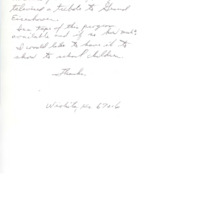 televised a tribute to General
Eisenhower.
Are tapes of this program
available and if so how much?
I would like to have it to
show to school children.
Thanks
Wichita, Ks 67016